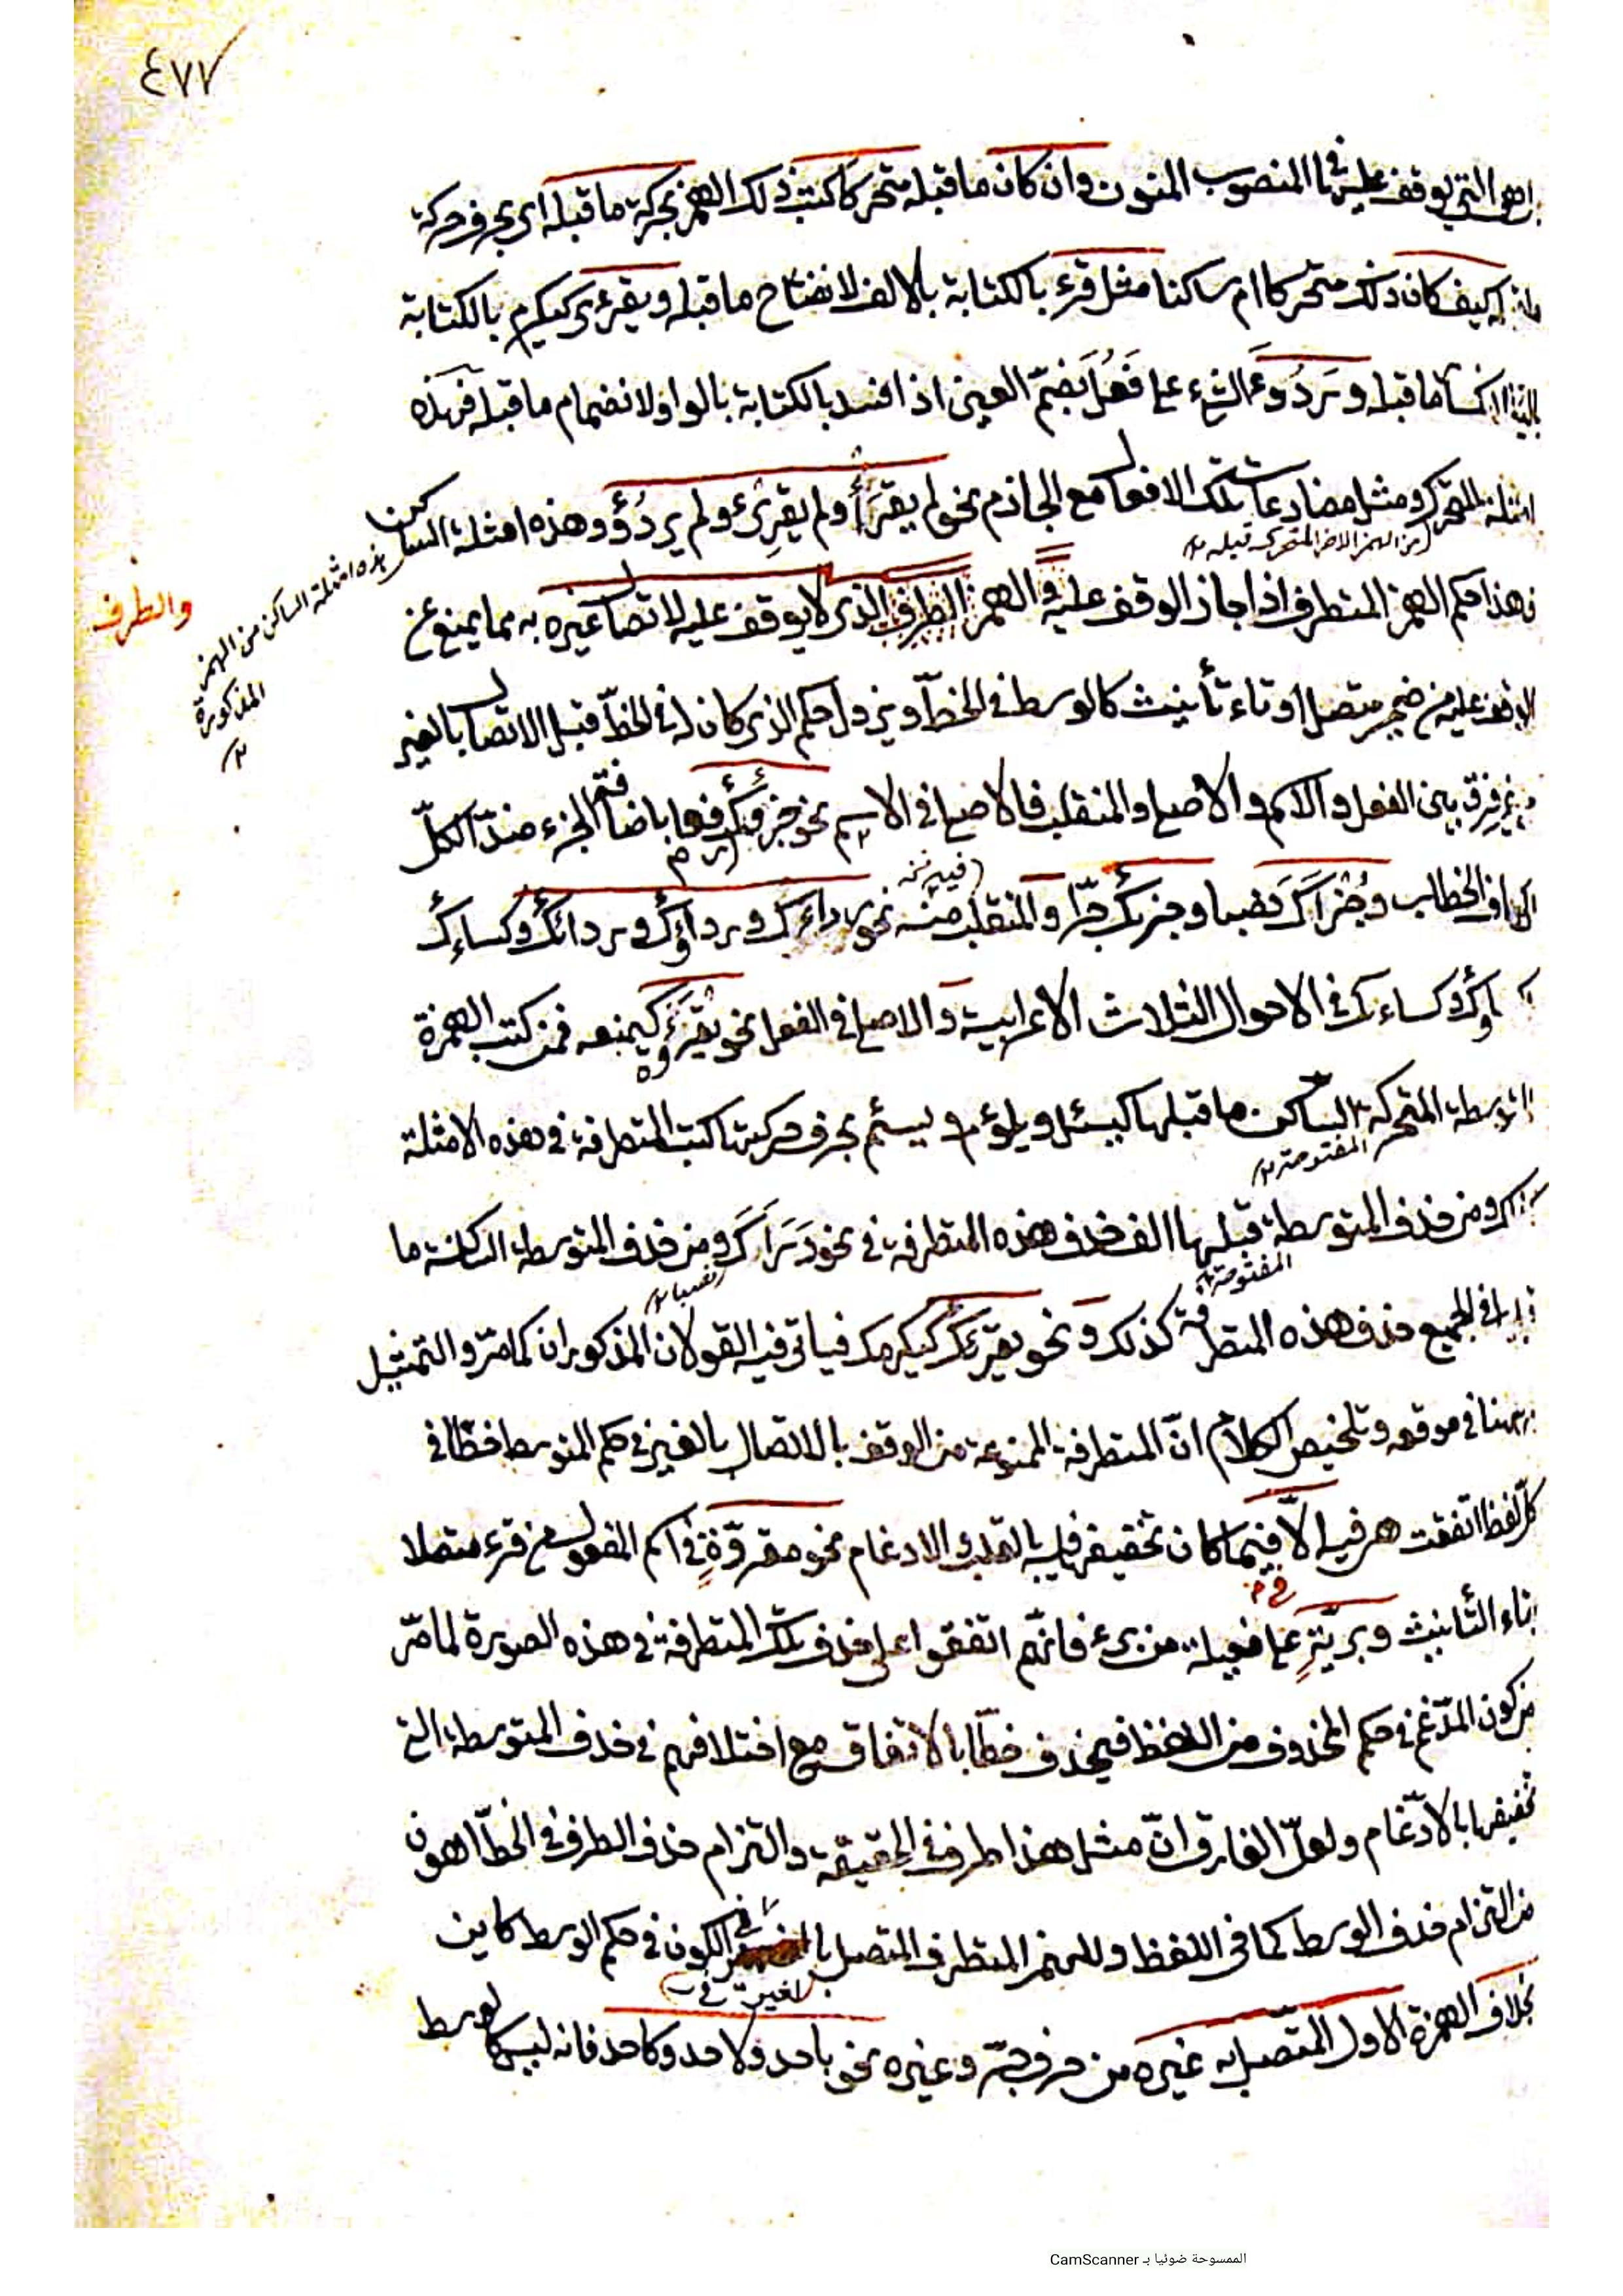 ٤٧٧
هى التى يوقف عليها فى المنصوب المنون وان كان ما قبله متحركا كتب ذلك الهمز بحركة ما قبله اى بحرف حركة
كيف كان ذلك متحركا ام ساكنا مثل قرء بالكتابة بالالف لانفتاح ما قبله ويقرئ كيكرم بالكتابة
ما قبله وردُوءَ الشىء على فَعُلَ بضمّ العين اذا افسد بالكتابة بالواو لانضمام ما قبله فهذه
امثلة المتحرك ومثل مضارعات تلك الافعال مع الجازم نحو لم يقرَأ ولم يقرِئ ولم يردُؤ وهذه امثلة الساكن
من الهمز الاخر المتحرك قبله
هذه امثلة الساكن من الهمز
المذكورة
والطرف
فهذا حكم الهمز المتطرف اذا جاز الوقف عليه و الهمز الطرف الذى لا يوقف عليه لاتصال غيره به مما يمنع عن
الوقف عليه من ضمير متصل او تاء تأنيث كالوسط فى الخطّ ويزول الحكم الذى كان له فى الخطّ قبل الاتصال بالغير
فرق بين الفعل والاسم والاصلى والمنقلب فالاصلى فى الاسم نحو جزؤُك رفعا باضافة الجزء ضدّ الكلّ
الى كاف الخطاب وجُزْأَكَ نصبا وجزئِك جرّا والمنقلب منه نحو رداءَك ورداؤُك وردائك وكسائِك
وكساءك فى الاحوال الثلاث الاعرابية والاصلى فى الفعل نحو يقرَؤُه كيمنعه فمن كتب الهمزة
المتوسطة المتحركة الساكن ما قبلها كيسئل ويلؤم ويسئم بحرف حركتها كتب المتطرفة فى هذه الامثلة
المفتوحة
ومن حذف المتوسطة قبلها الف حذف هذه المتطرفة فى نحو رداءَك ومن حذف المتوسطة الساكنة ما
المفتوحة
نصبا
فى الجميع حذف هذه المتطرفة كذلك و نحو يقرئك كيكرمك فياتى فيه القولان المذكوران كما مرّ والتمثيل
هنا فى موقعه وتلخيص الكلام انّ المتطرفة الممنوعة من الوقف بالاتصال بالغير فى حكم المتوسط خطّا فى
كلّ لفظ اتفقت هى فيه الّا فيما كان تخفيفها فيه بالقلب والادغام نحو مقروّةٍ فى اسم المفعول من قرء متصلا
بتاء التأنيث وبريّةٍ على فعيلة من برء فانهم اتفقوا على حذف تلك المتطرفة فى هذه الصورة لما مرّ
من كون المدّغم فى حكم المحذوف من اللفظ فيحذف خطّا بالاتفاق مع اختلافهم فى حذف المتوسطة التى
تخفيفها بالادّغام ولعلّ الفارق انّ مثل هذا طرف فى الحقيقة والتزام حذف الطرف فى الخطّ اهون
من التزام حذف الوسط كما فى اللفظ وللهمز المتطرف المتصل بالغير فى الكون فى حكم الوسط كاين
بخلاف الهمزة الاول المتّصل به غيره من حرف جرّ وغيره نحو باحد ولاحد وكاحد فانه ليس كالوسط
الممسوحة ضوئيا بـ CamScanner